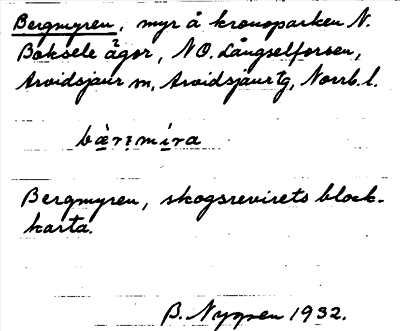 Bergmyren, myr å kronoparken N.
Boksele ågor, NO. Långselforsen,
Arvidsjaur sn, Arvidsjaur tg, Norrb. l.
bæ̀rı̣mı́ra
Bergmyren, skogsrevirets block-
karta.
B. Nygren 1932.